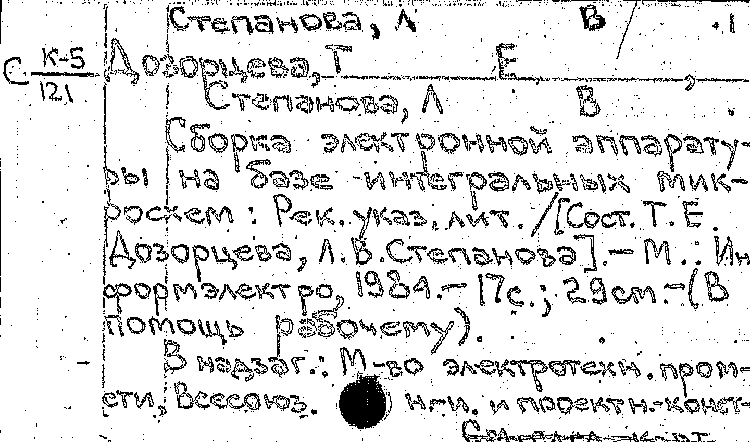 Степанова, Л В
С К-5
121
Дозорцева, Т Е ,
Степанова, Л В .
Сборка электронной аппарату-
ры на базе интегральных мик-
росхем : Рек. указ. лит. / [Сост. Т. Е.
Дозорцева, Л. В. Степанова]. – М. : Ин
формэлектро, 1984. – 17с. ; 29см. – (В
помощь рабочему).
В надзаг.: М-во электротехн. пром-
сти, Всесоюз. н.-и. и проектн.-конст-